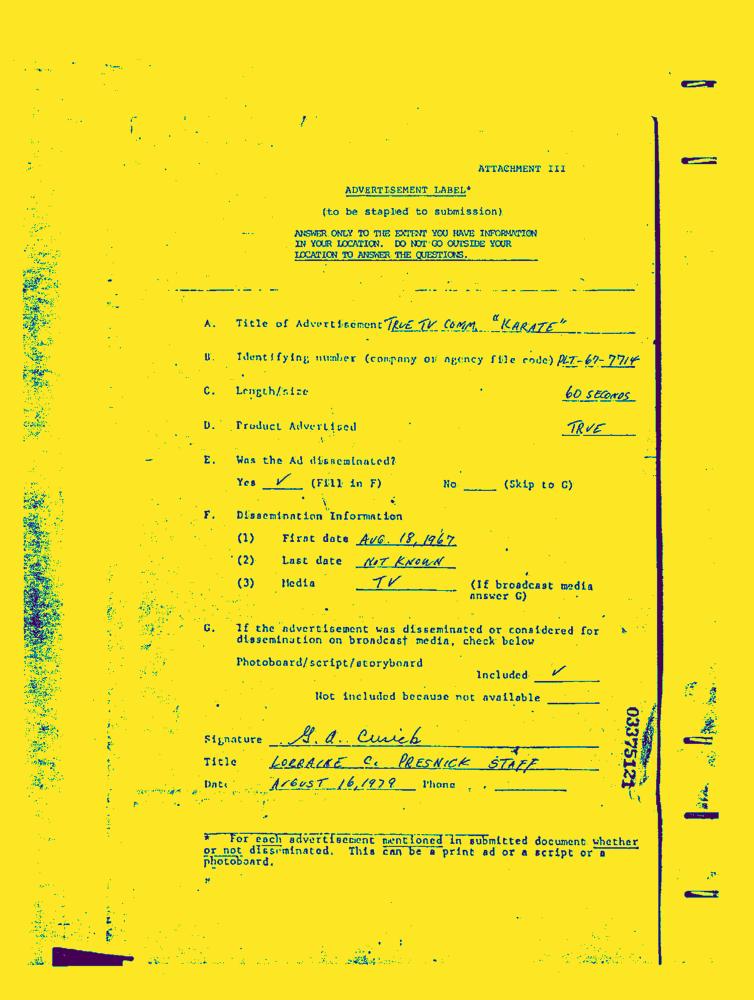 ATTACHMENT III
ADVERTISEMENT LABEL*
(to be stapled to submission)
ANSWER ONLY TO THE EXTENT YOU HAVE INFORMATION
IN YOUR LOCATION. DO NOT GO OUTSIDE YOUR
LOCATION TO ANSWER THE QUESTIONS.
A. Title of Advertisement TRUE TV COMM. "KARATE"
B. Identifying number (company or agency file code) PLT-67-7714
C. Length/size 60 SECONDS
D. Product Advertised TRUE
E. Was the Ad disseminated?
Yes ✓ (Fill in F) No ____ (Skip to G)
F. Dissemination Information
(1) First date AUG. 18, 1967
(2) Last date NOT KNOWN
(3) Media TV (If broadcast media
answer G)
G. If the advertisement was disseminated or considered for
dissemination on broadcast media, check below
Photoboard/script/storyboard
Included ✓
Not included because not available ____
Signature G. A.
Title C. PRESNICK STAFF
Date AUGUST 16, 1979 Phone
03375121
* For each advertisement mentioned in submitted document whether
or not disseminated. This can be a print ad or a script or a
photoboard.